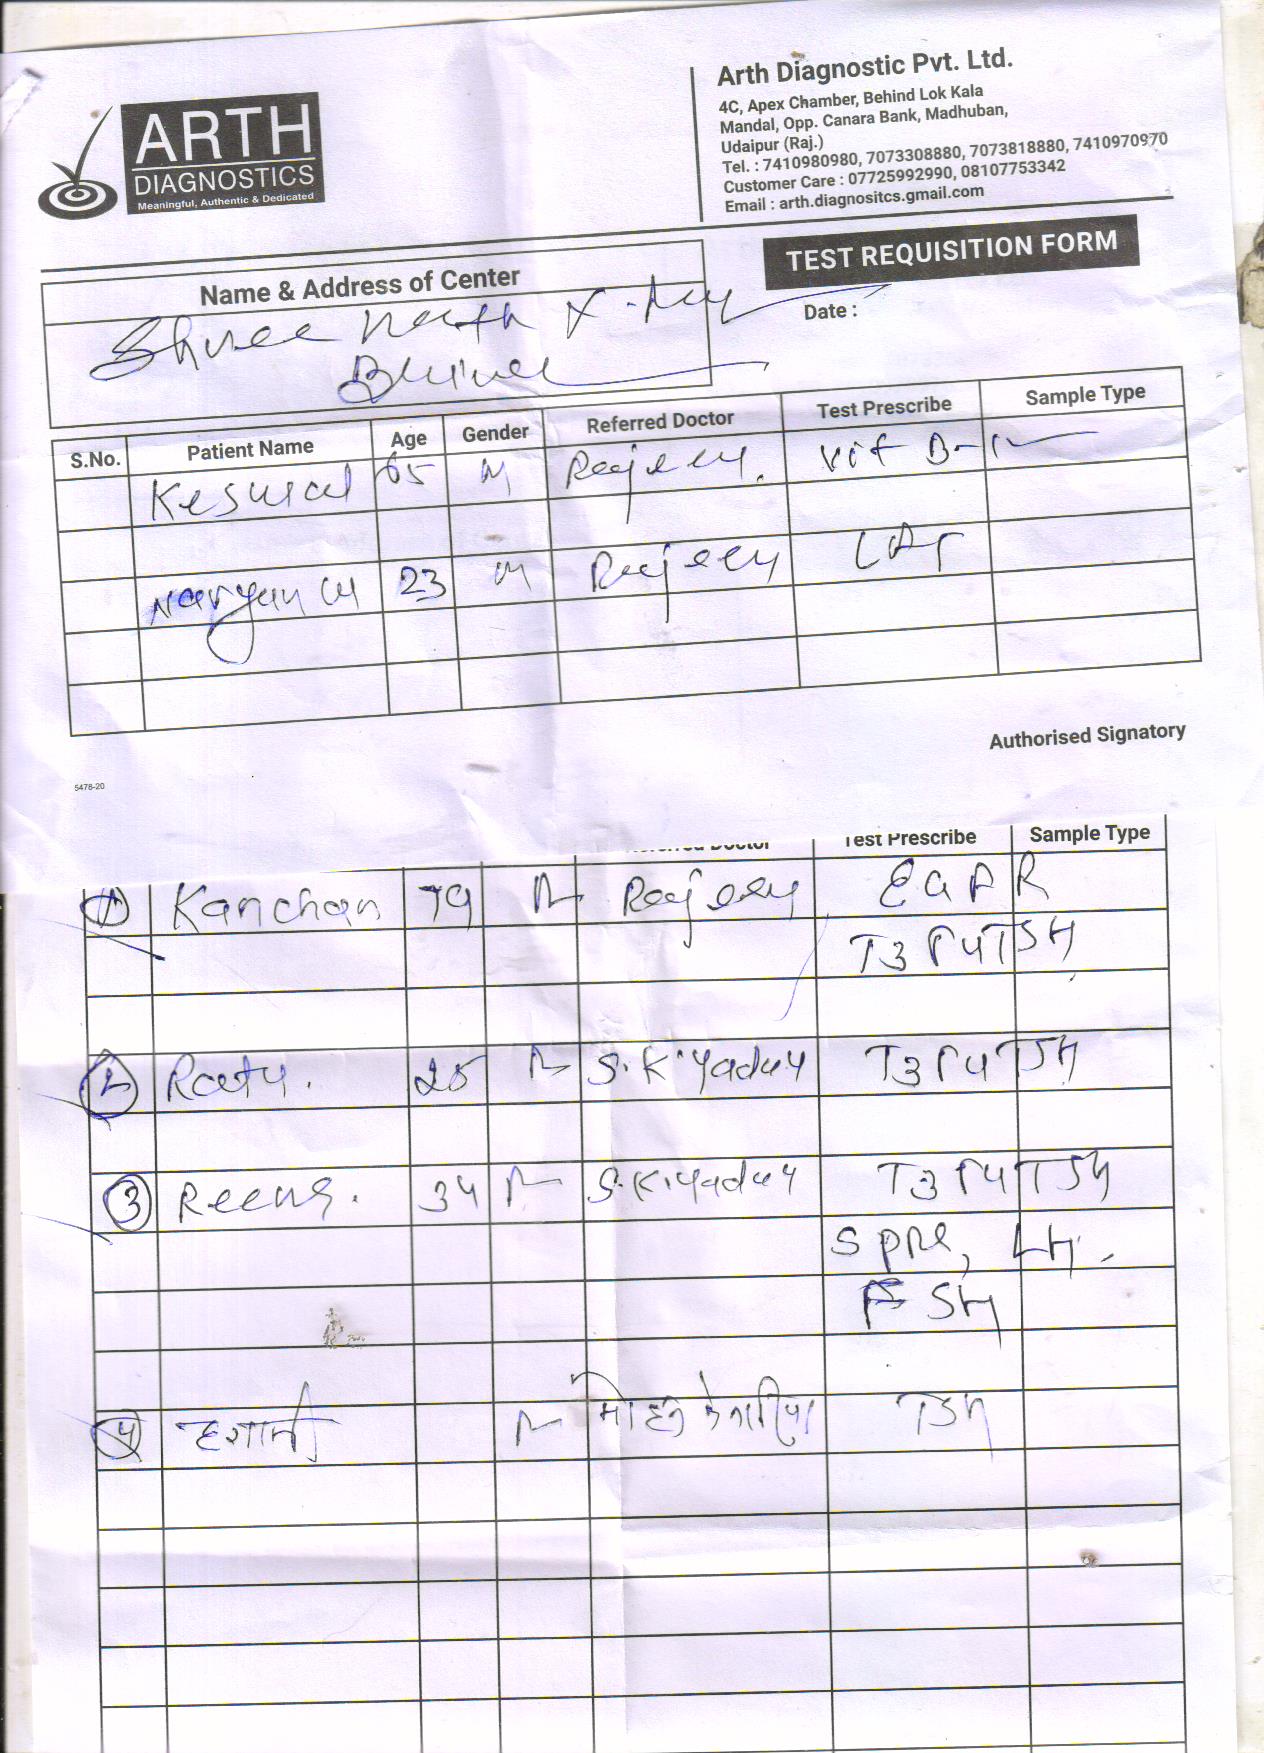 ARTH
DIAGNOSTICS
Meaningful, Authentic & Dedicated
Arth Diagnostic Pvt. Ltd.
4C, Apex Chamber, Behind Lok Kala
Mandal, Opp. Canara Bank, Madhuban,
Udaipur (Raj.)
Tel. : 7410980980, 7073308880, 7073818880, 7410970970
Customer Care : 07725992990, 08107753342
Email : arth.diagnositcs.gmail.com
TEST REQUISITION FORM
Name & Address of Center
Date :
Shree Nath X-Ray
S.No. Patient Name Age Gender Referred Doctor Test Prescribe Sample Type
65 M Rajeev. Vit B-12
23 M Rajeev
Authorised Signatory
5478-20
Referred Doctor Test Prescribe Sample Type
1 Kanchan 79 Rajeev
T3 T4 TSH
2 25 S.K.Yadav T3 T4 TSH
3 Reena. 34 S.K.Yadav T3 T4 TSH
LH.
FSH
4 TSH